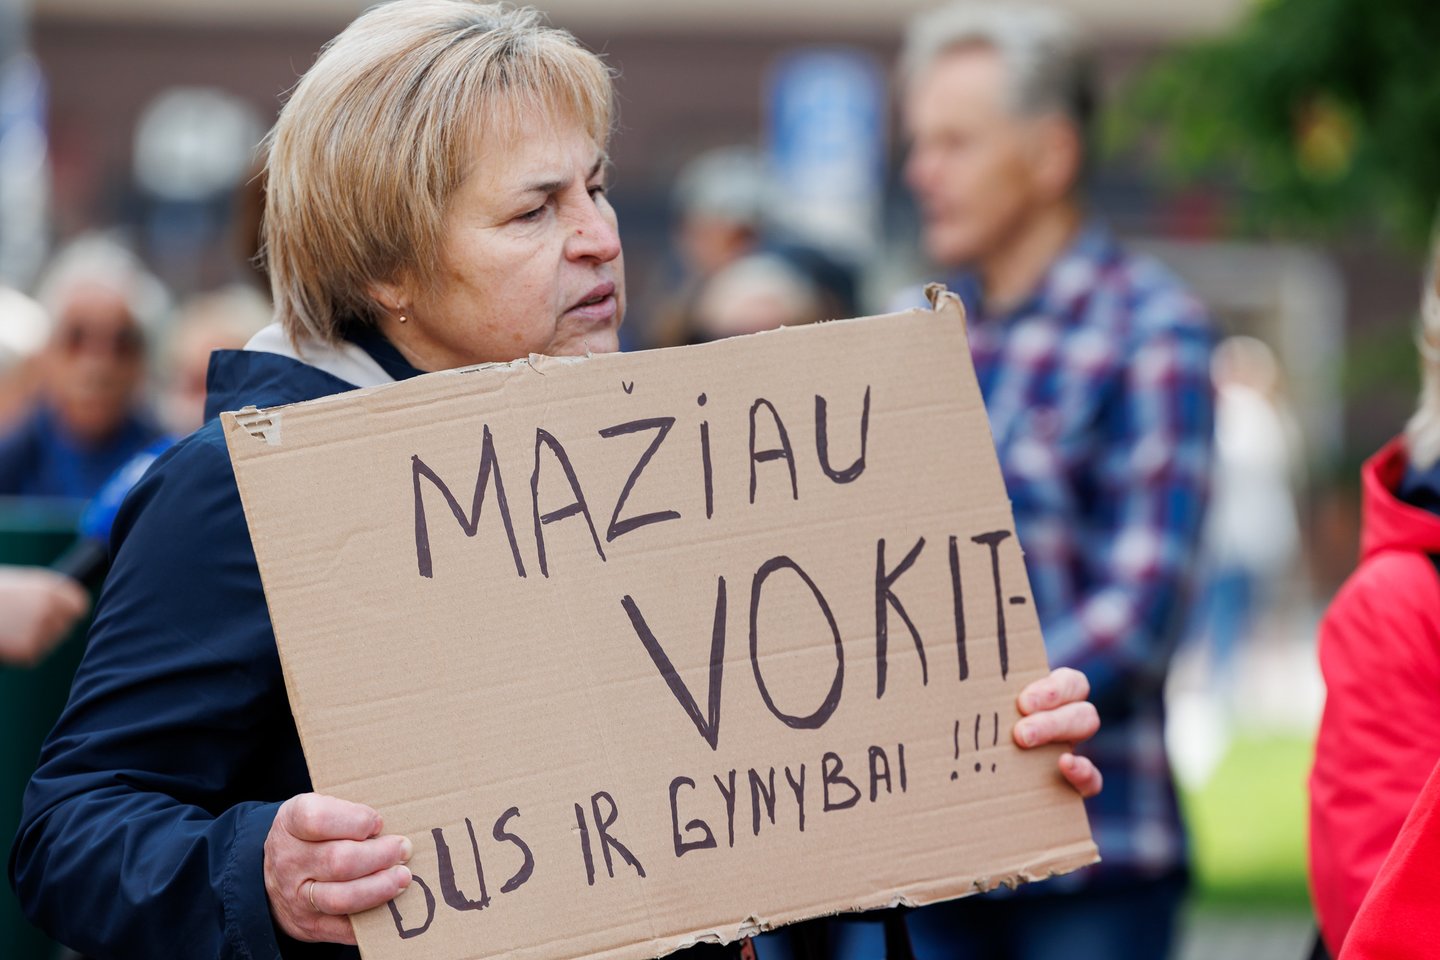 MAŽIAU
VOKIT-
DUS IR GYNYBAI !!!